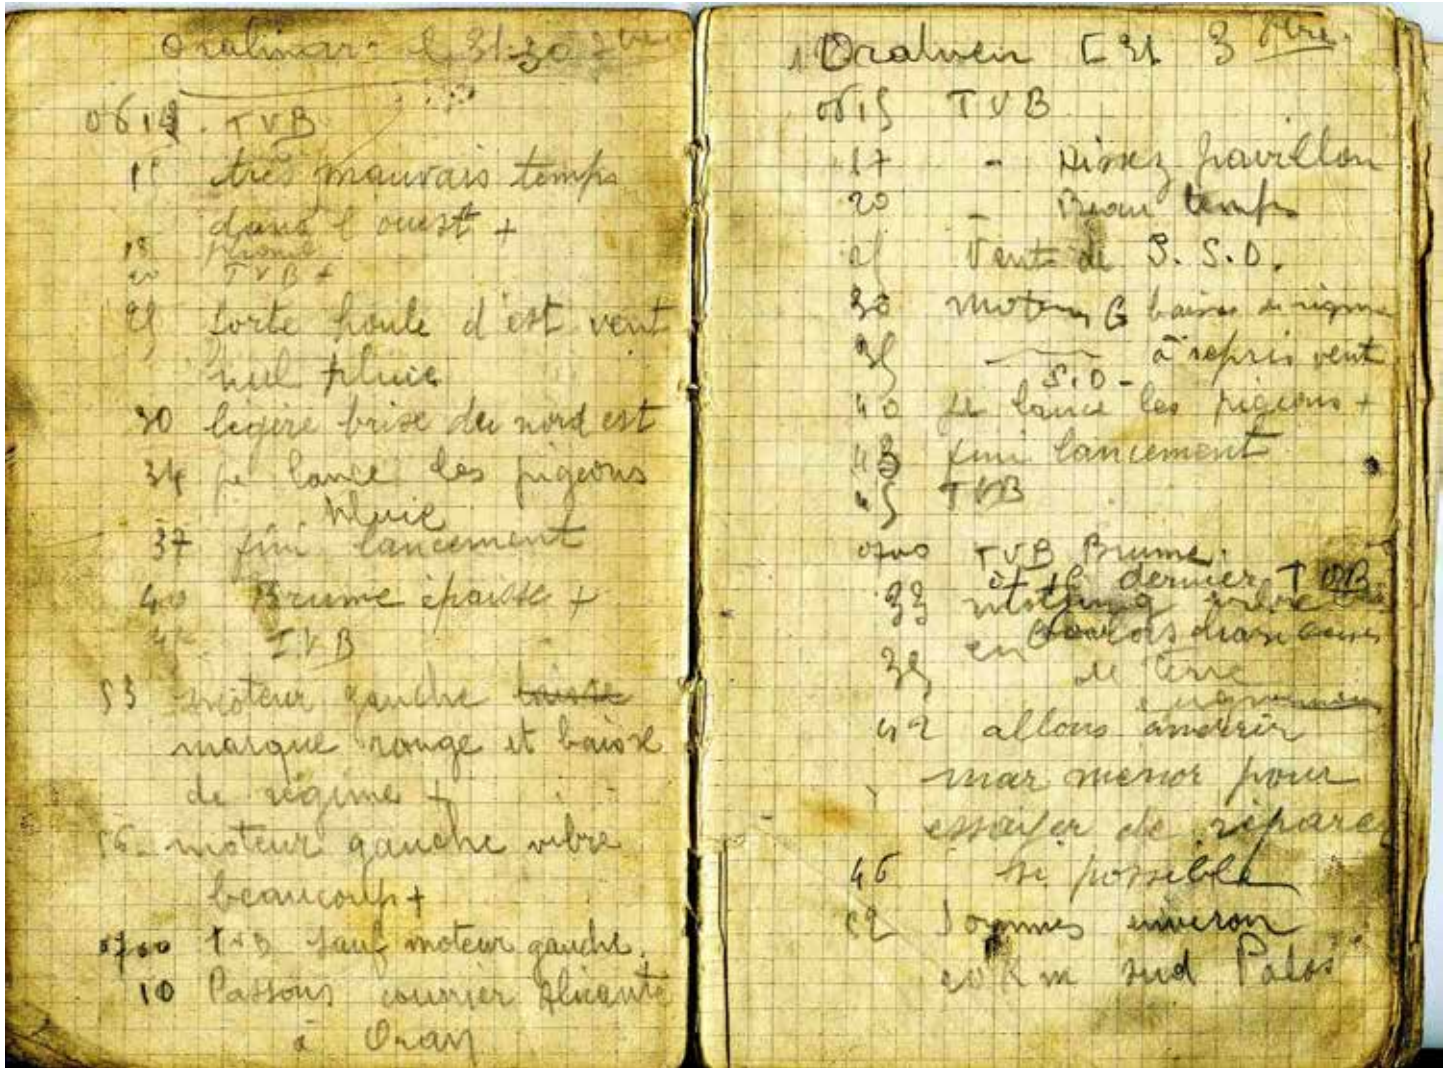 0614. TVB
très mauvais temps
dans l'ouest +
18
20 TVB +
25 forte houle d'est vent
nul pluie
30 légère brise du nord est
34 je lance les pigeons
pluie
37 fini lancement
40 Brume épaisse +
TVB
53 moteur gauche baisse
marque rouge et baisse
de régime +
56 - moteur gauche vibre
beaucoup +
0700 TVB sauf moteur gauche.
10 Passons courrier Alicante
à Oran
E 31 3
0615 TVB
17 - Hissez pavillon
20 - Beau temps
25 Vent de S.S.O.
30 moteur G baisse de régime
35 à repris vent
S.O -
40 je lance les pigeons +
43 fini lancement
45 TVB
0700 TVB Brume.
dernier TVB
33
35 de terre
42 allons amerrir
mar menor pour
essayer de réparer
46 si possible
52 Sommes environ
20 Km sud Palos